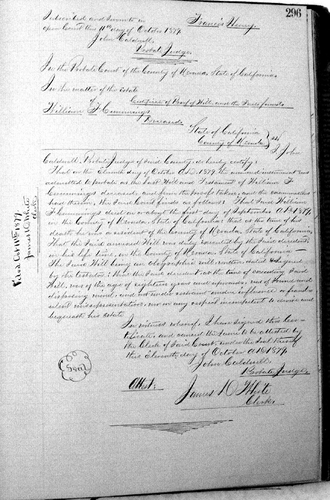 296
Subscribed and sworn to in Francis
open Court this 11th day of October 1879
John Caldwell
Probate Judge
In the Probate Court of the County of Nevada, State of California
In the matter of the Estate
of Certificate of Proof of Will and the Facts found
William F. Cummings
Deceased
State of California
County of Nevada ss
I, John
Caldwell, Probate Judge of said County, do hereby certify:
That on the Eleventh day of October A.D. 1879 the annexed instrument was
admitted to probate as the last Will and Testament of William F.
Cummings deceased, and from the proofs taken, and the examination
had therein, the said Court finds as follows: That said William
F. Cummings died on or about the first day of September A.D. 1879
in the County of Nevada, State of California; that at the time of his
death he was a resident of the County of Nevada, State of California,
That the said annexed Will was duly executed by the said decedent
in his life time, in the County of Nevada, State of California
Said Will being an olographic will written dated & signed
by the testator; that the said decedent at the time of executing said
Will, was of the age of eighteen years and upwards, was of sound and
disposing mind, and not under restraint, undue influence or fraud-
ulent misrepresentation, nor in any respect incompetent to devise and
bequeath his estate
In witness whereof, I have signed this Cer-
tificate and caused the same to be attested by
the Clerk of said Court, under the Seal thereof
this Eleventh day of October A.D. 1879.
John Caldwell
Probate Judge
Attest;
James D. White
Clerk
Filed Oct 11th 1879
James D. White
Clerk